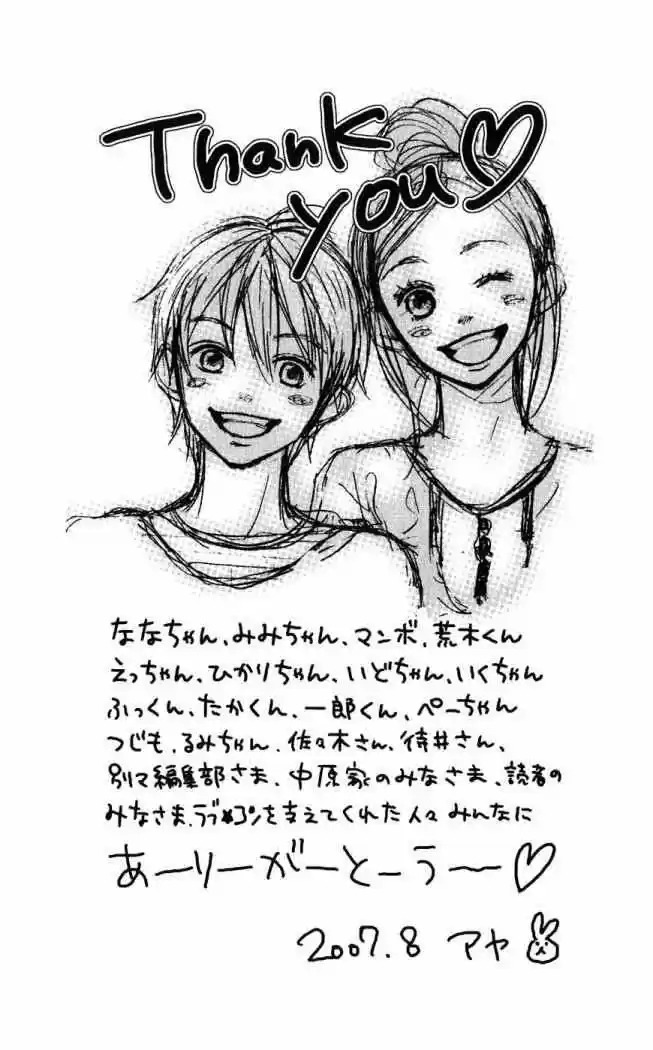 Thank
you♡
ななちゃん、みみちゃん、マンボ、荒木くん
えっちゃん、ひかりちゃん、いどちゃん、いくちゃん
ふっくん、たかくん、一郎くん、ぺーちゃん
つじも、るみちゃん、佐々木さん、待井さん、
別マ編集部さま、中原家のみなさま、読者の
みなさま、ラブ★コンを支えてくれた人々 みんなに
あーりーがーとーうー♡
2007.8 アヤ